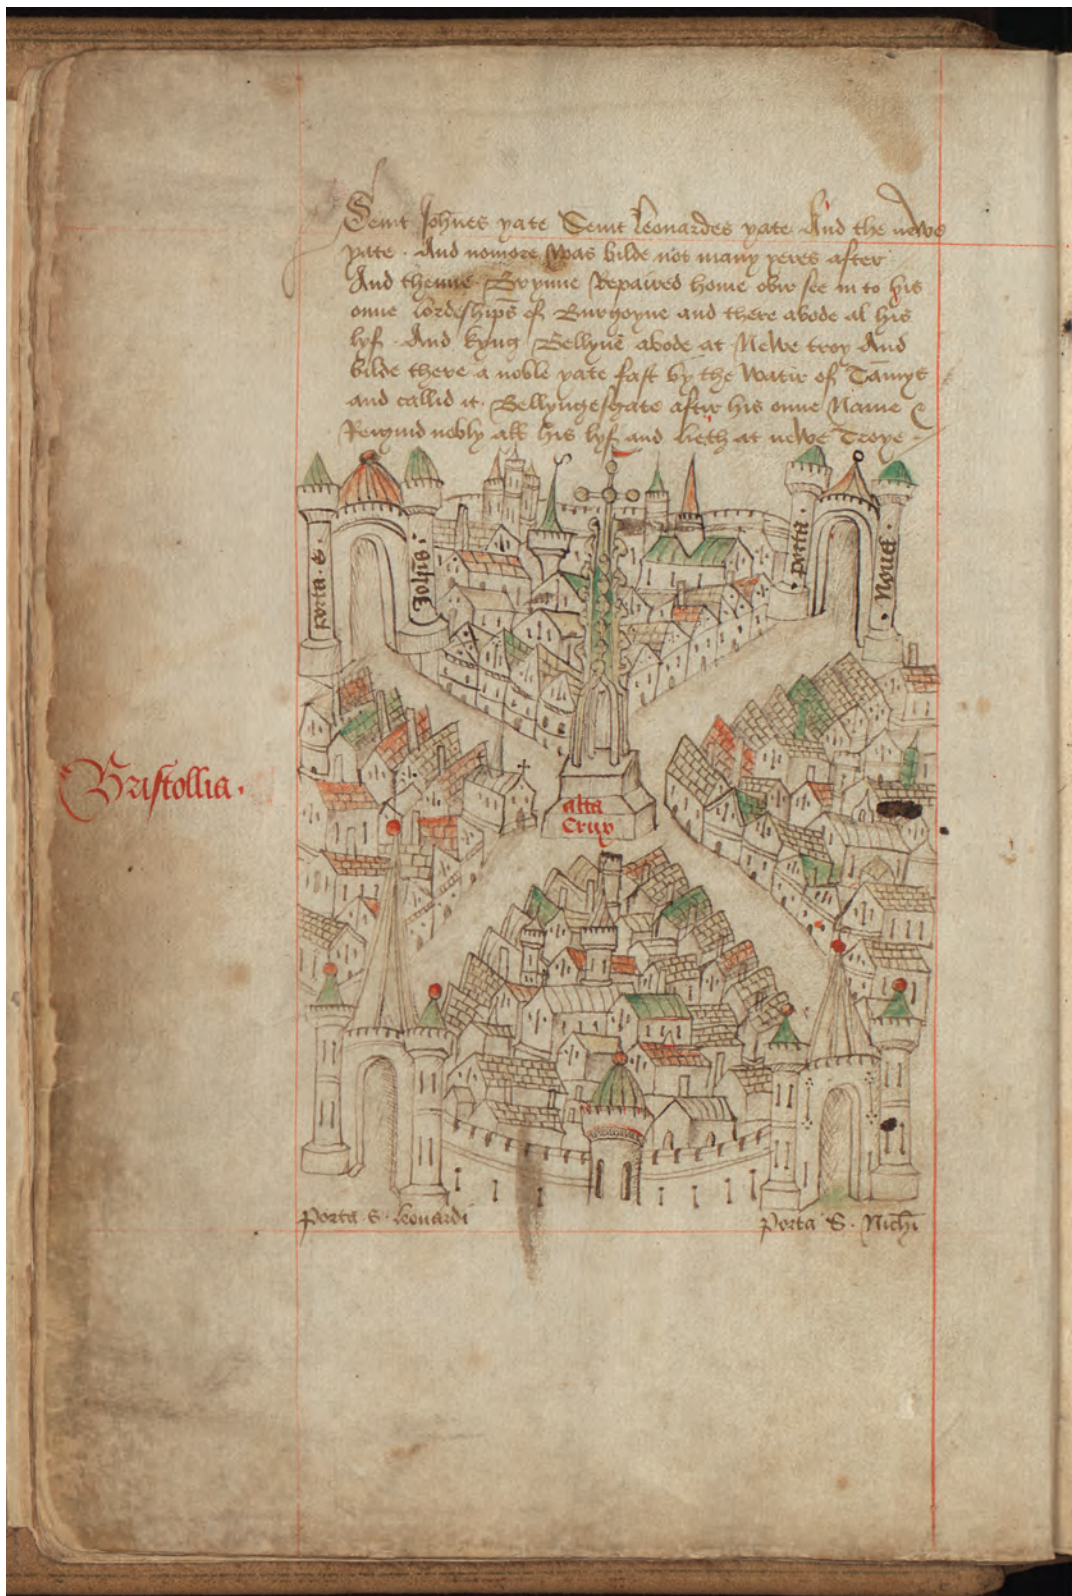 Seint Johnes yate Seint Leonardes yate And the newe
yate . And nomore was bilde not many yeres after
And thenne Brynne Repaired home ovir see in to his
onne lordeships of Burgoyne and there abode al his
lyf . And kyng Bellyne abode at Newe troy And
bilde there a noble yate fast by the Watir of Tamyse
and callid it . Bellyngesgate aftir his onne Name &
Reignid nobly all his lyf and lieth at newe Troye
porta . S .
Joh̄is .
. porta .
. Noua .
Bristollia .
alta
Crux
Porta . S . Leonardi
Porta S . Nich̄i